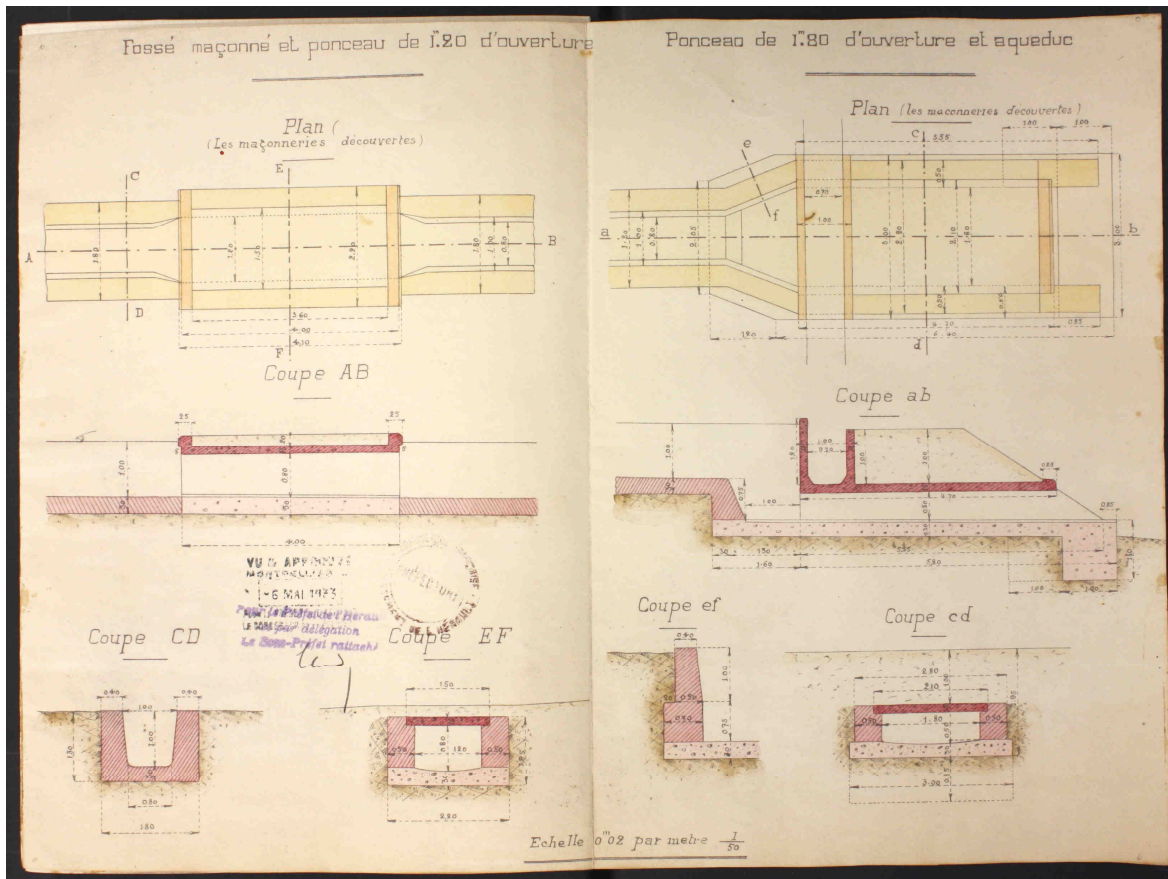 Fossé maçonné et ponceau de 1m20 d'ouverture
Plan (
(Les maçonneries découvertes)
C
E
A
B
D
F
1.80
1.50
2.20
1.80
1.00
0.80
3.60
4.00
4.10
Coupe AB
25
25
1.00
0.80
4.00
VU & APPROUVÉ
MONTPELLIER
-6 MAI 1933
Pour le Préfet de l'Hérault
par délégation
Le Sous-Préfet rattaché
Coupe CD
0.40
1.00
0.40
1.30
1.00
0.80
1.80
Coupe EF
1.50
0.50
0.80
1.20
0.50
2.20
Ponceau de 1m80 d'ouverture et aqueduc
Plan (les maconneries découvertes)
c
1.00
5.55
e
f
0.70
1.00
0.50
a
b
3.00
2.80
2.10
1.80
0.50
d
1.20
0.85
6.40
Coupe ab
1.00
1.00
0.70
1.00
1.00
0.75
1.00
4.70
0.85
1.60
5.80
Coupe ef
0.40
1.00
0.75
Coupe cd
2.80
2.10
1.00
0.50
1.80
0.50
0.50
3.00
Echelle 0m02 par metre 1/50